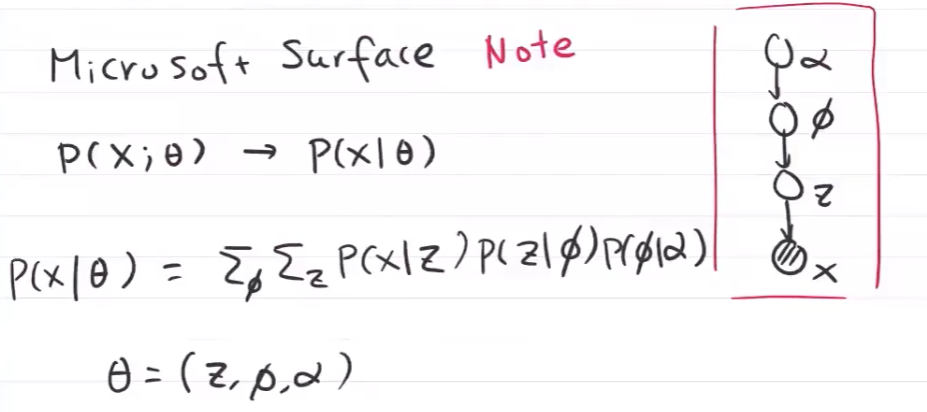 Microsoft Surface Note
P(X;θ) → P(x|θ)
P(x|θ) = Σ_ϕ Σ_z P(x|z)P(z|ϕ)P(ϕ|α)
θ=(z,ϕ,α)
α
ϕ
z
x